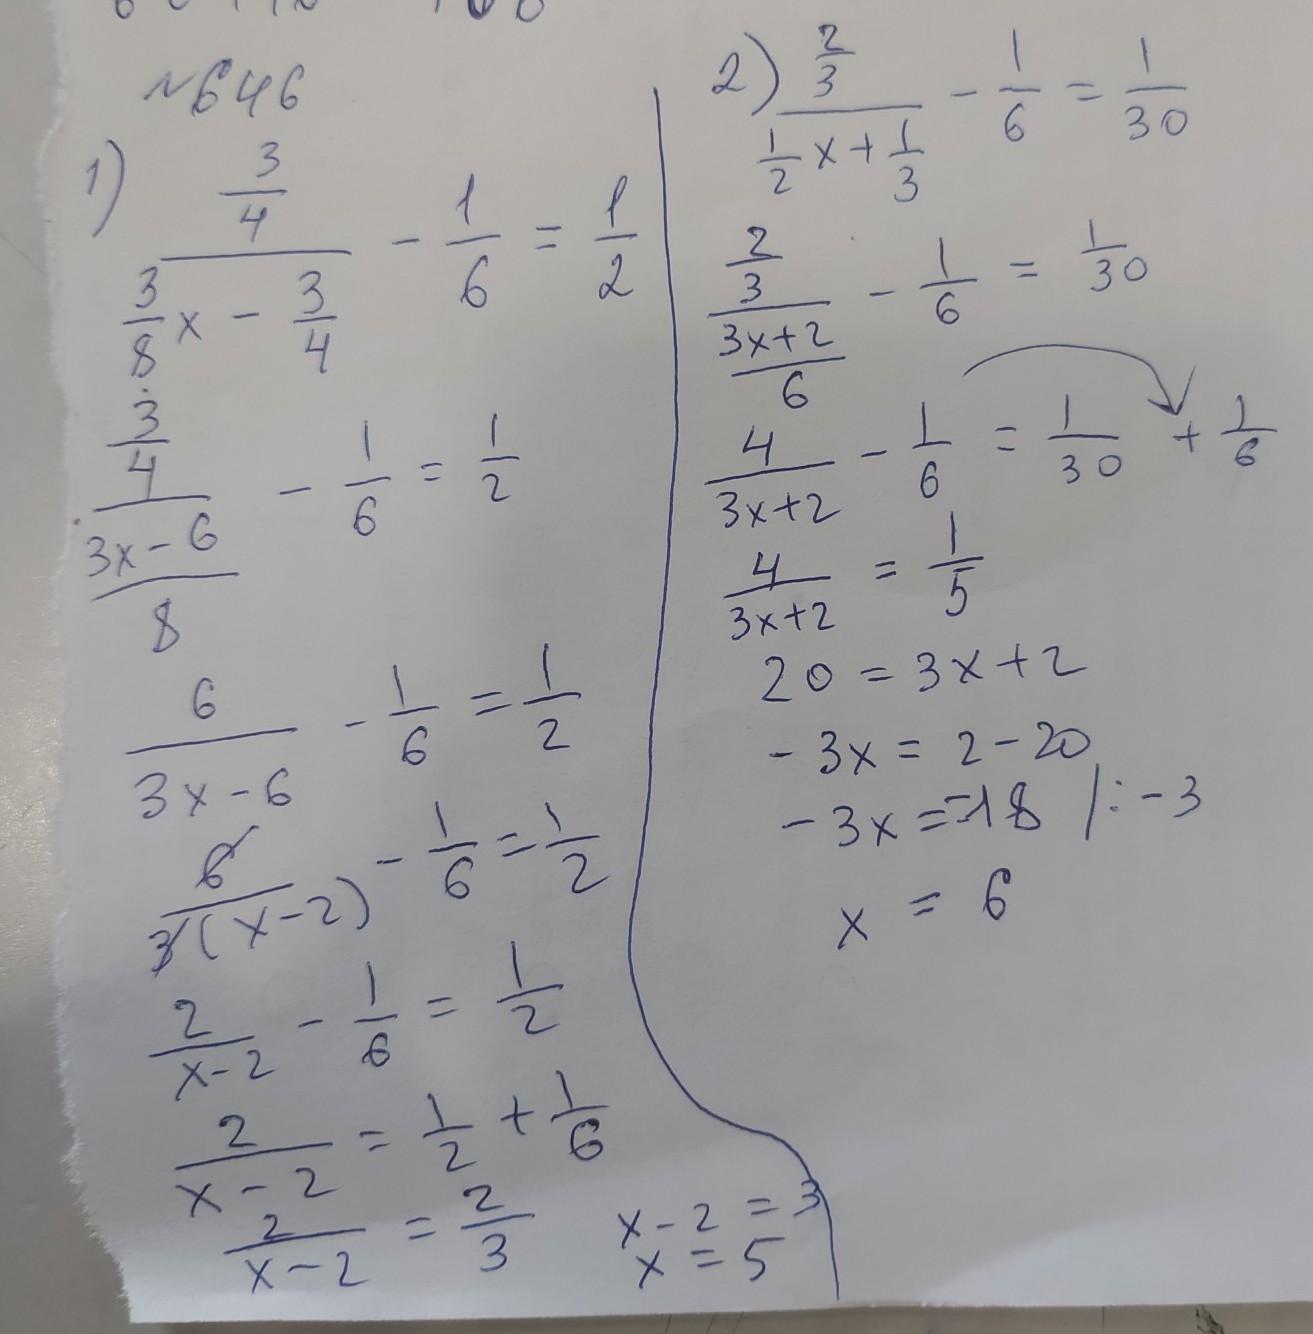 №646
1) \frac{\frac{3}{4}}{\frac{3}{8}x - \frac{3}{4}} - \frac{1}{6} = \frac{1}{2}
\frac{\frac{3}{4}}{\frac{3x-6}{8}} - \frac{1}{6} = \frac{1}{2}
\frac{6}{3x-6} - \frac{1}{6} = \frac{1}{2}
\frac{6}{3(x-2)} - \frac{1}{6} = \frac{1}{2}
\frac{2}{x-2} - \frac{1}{6} = \frac{1}{2}
\frac{2}{x-2} = \frac{1}{2} + \frac{1}{6}
\frac{2}{x-2} = \frac{2}{3}
x-2 = 3
x = 5
2) \frac{\frac{2}{3}}{\frac{1}{2}x + \frac{1}{3}} - \frac{1}{6} = \frac{1}{30}
\frac{\frac{2}{3}}{\frac{3x+2}{6}} - \frac{1}{6} = \frac{1}{30}
\frac{4}{3x+2} - \frac{1}{6} = \frac{1}{30} + \frac{1}{6}
\frac{4}{3x+2} = \frac{1}{5}
20 = 3x+2
-3x = 2-20
-3x = -18 /:-3
x = 6